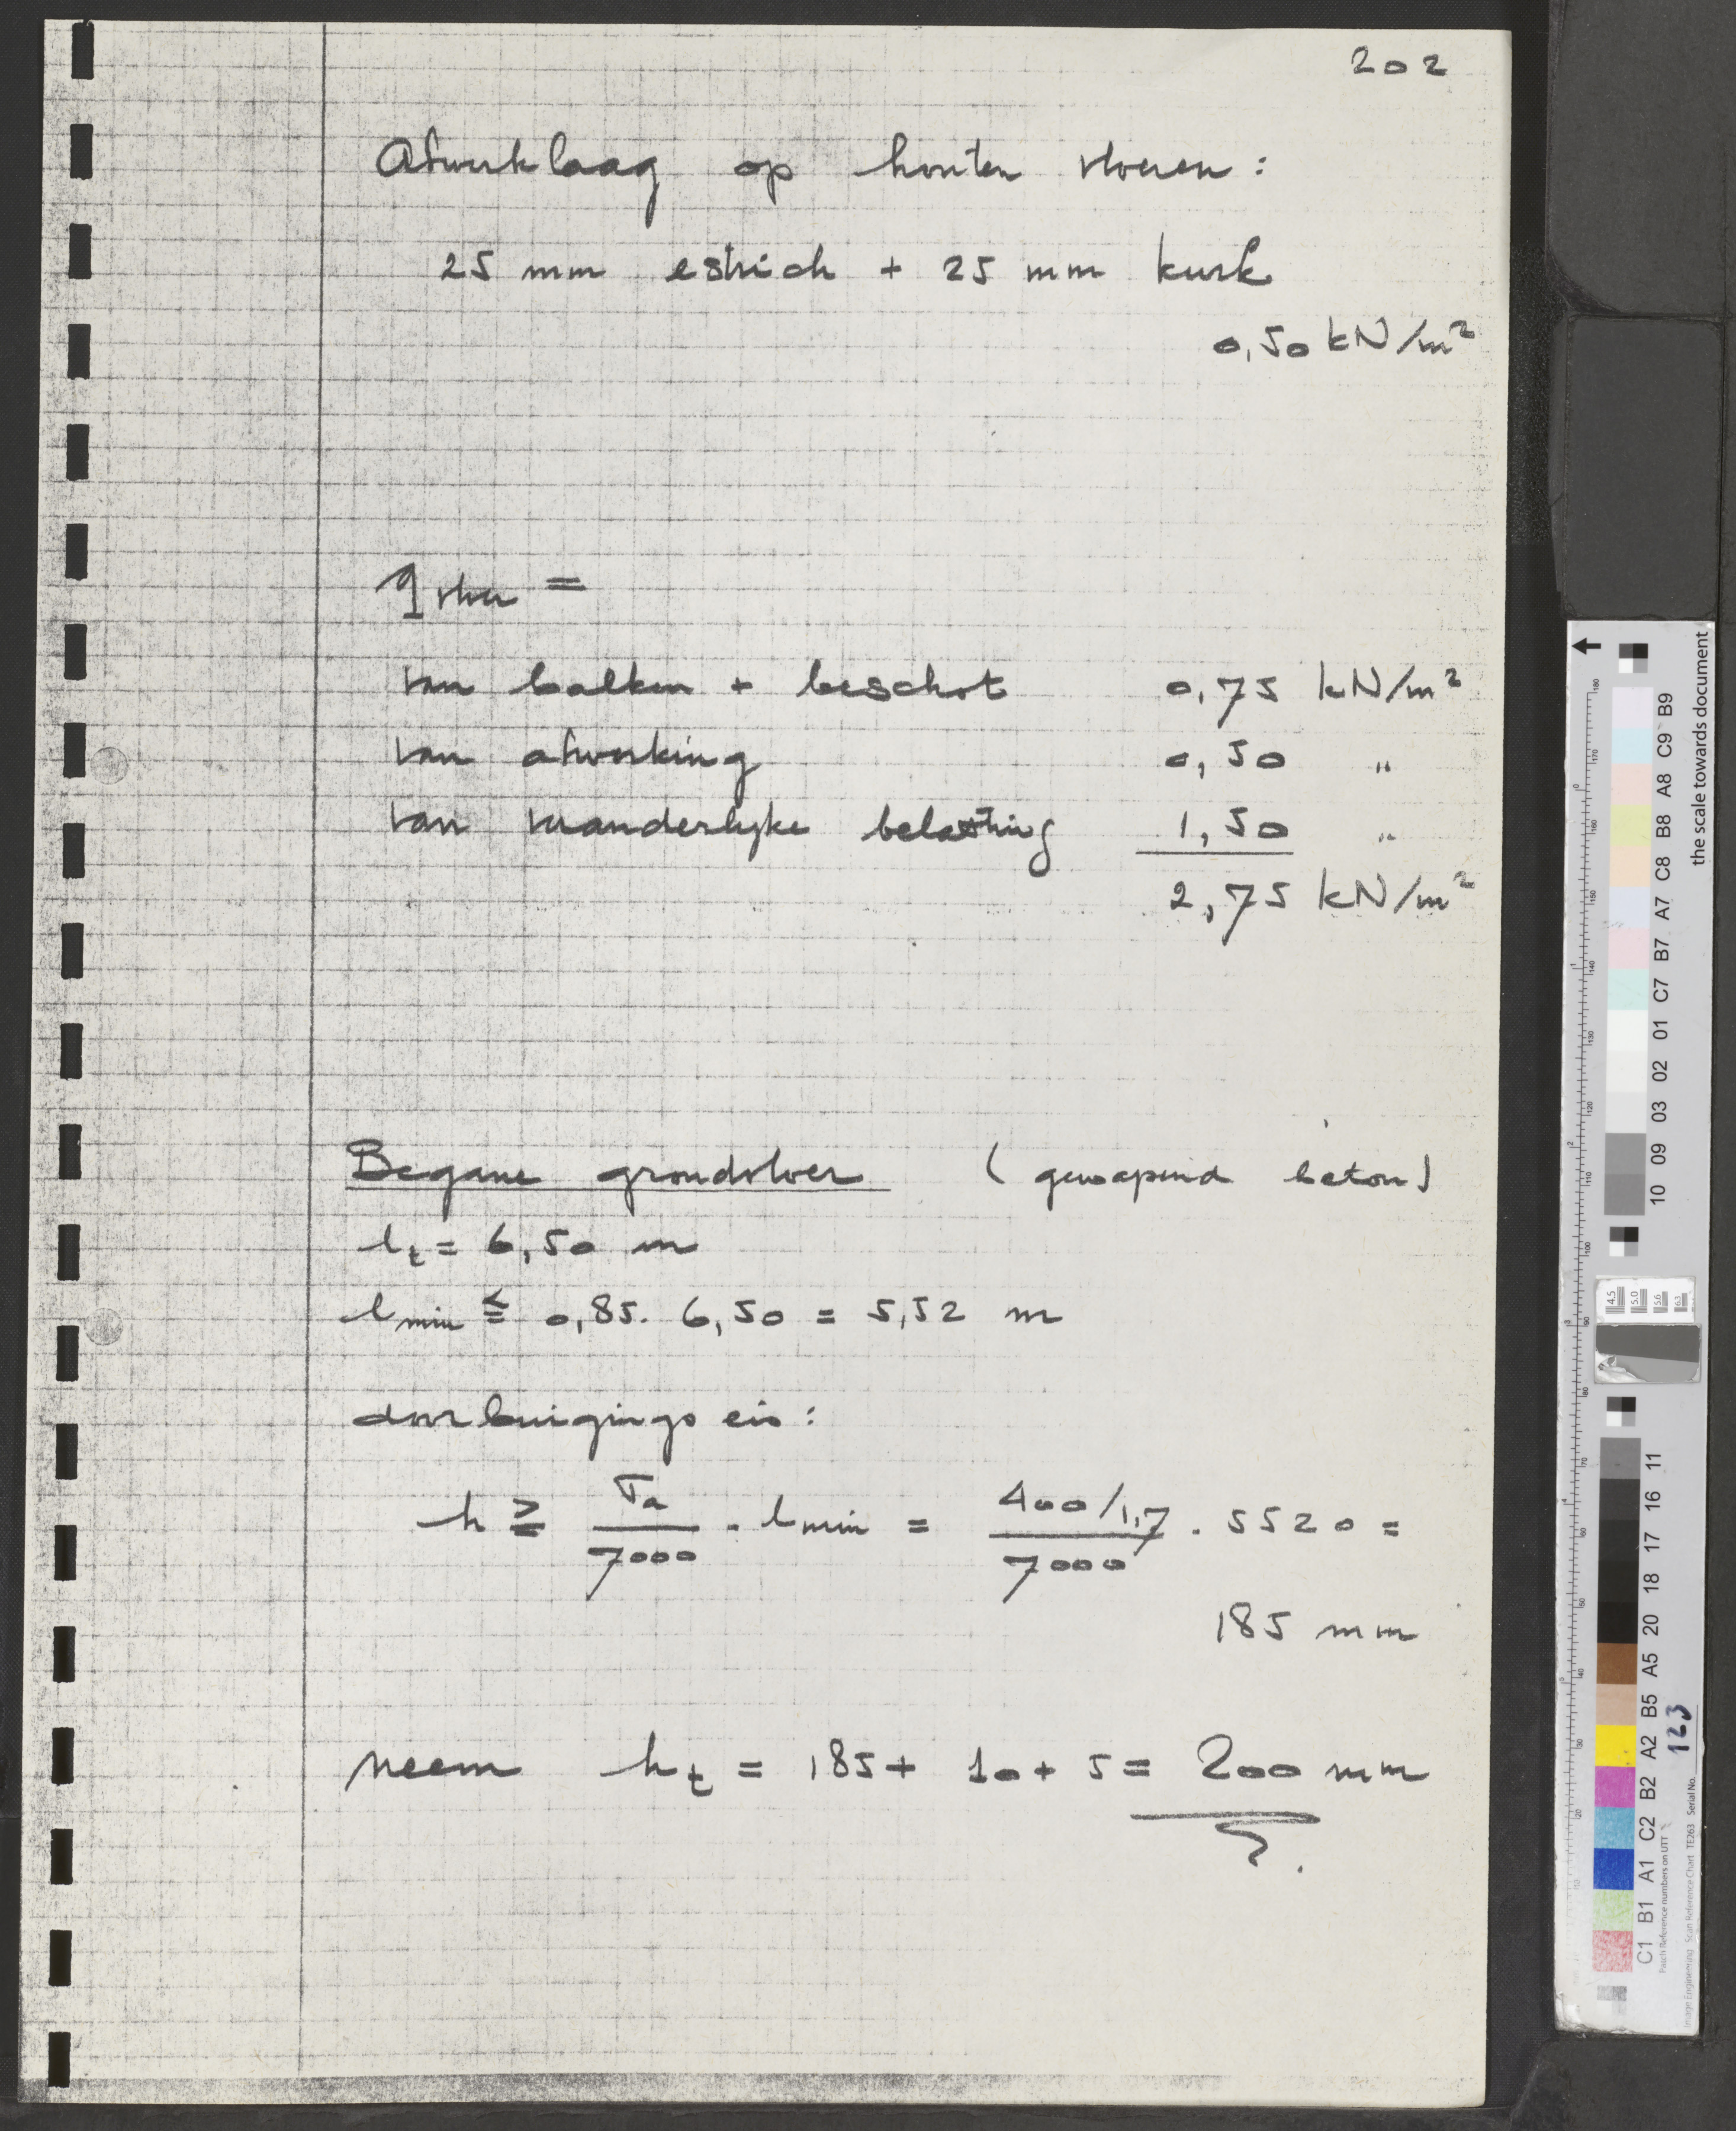 202
Afwerklaag op houten vloeren:
25 mm estrich + 25 mm kurk
0,50 kN/m²
q vloer =
van balken + beschot 0,75 kN/m²
van afwerking 0,50 "
van veranderlijke belasting 1,50 "
2,75 kN/m²
Begane grondvloer (gewapend beton)
l_t = 6,50 m
l_min ≤ 0,85 . 6,50 = 5,52 m
doorbuigingseis:
h ≥ σ_a / 7000 . l_min = 400/1,7 / 7000 . 5520 =
185 mm
neem h_t = 185 + 10 + 5 = 200 mm
the scale towards document
C1 B1 A1 C2 B2 A2 B5 A5 20 18 17 16 11
10 09 03 02 01 C7 B7 A7 C8 B8 A8 C9 B9
Patch Reference numbers on UTT
Image Engineering Scan Reference Chart TE263 Serial No. 123